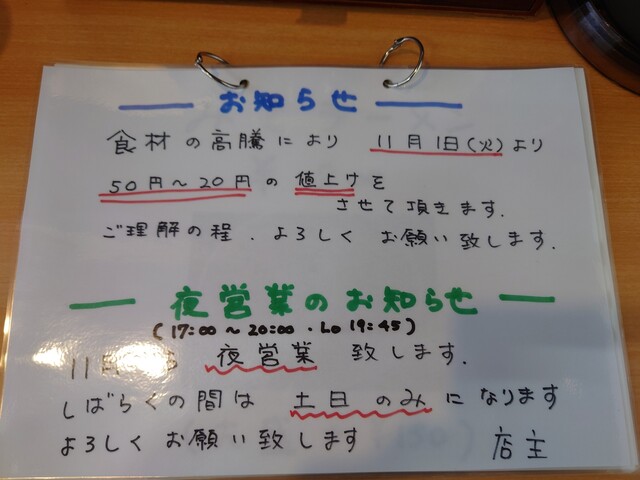 お知らせ
食材の高騰により 11月1日(火)より
50円～20円の値上げを
させて頂きます.
ご理解の程.よろしくお願い致します.
夜営業のお知らせ
(17:00～20:00・Lo 19:45)
11月 夜営業 致します.
しばらくの間は 土日のみになります
よろしくお願い致します 店主